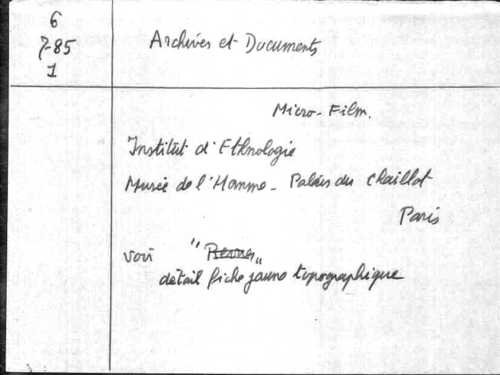 6
7-85
1
Archives et Documents
Micro-Film.
Institut d'Ethnologie
Musée de l'Homme - Palais du Chaillot
Paris
voir " Revues "
détail fiche jaune topographique